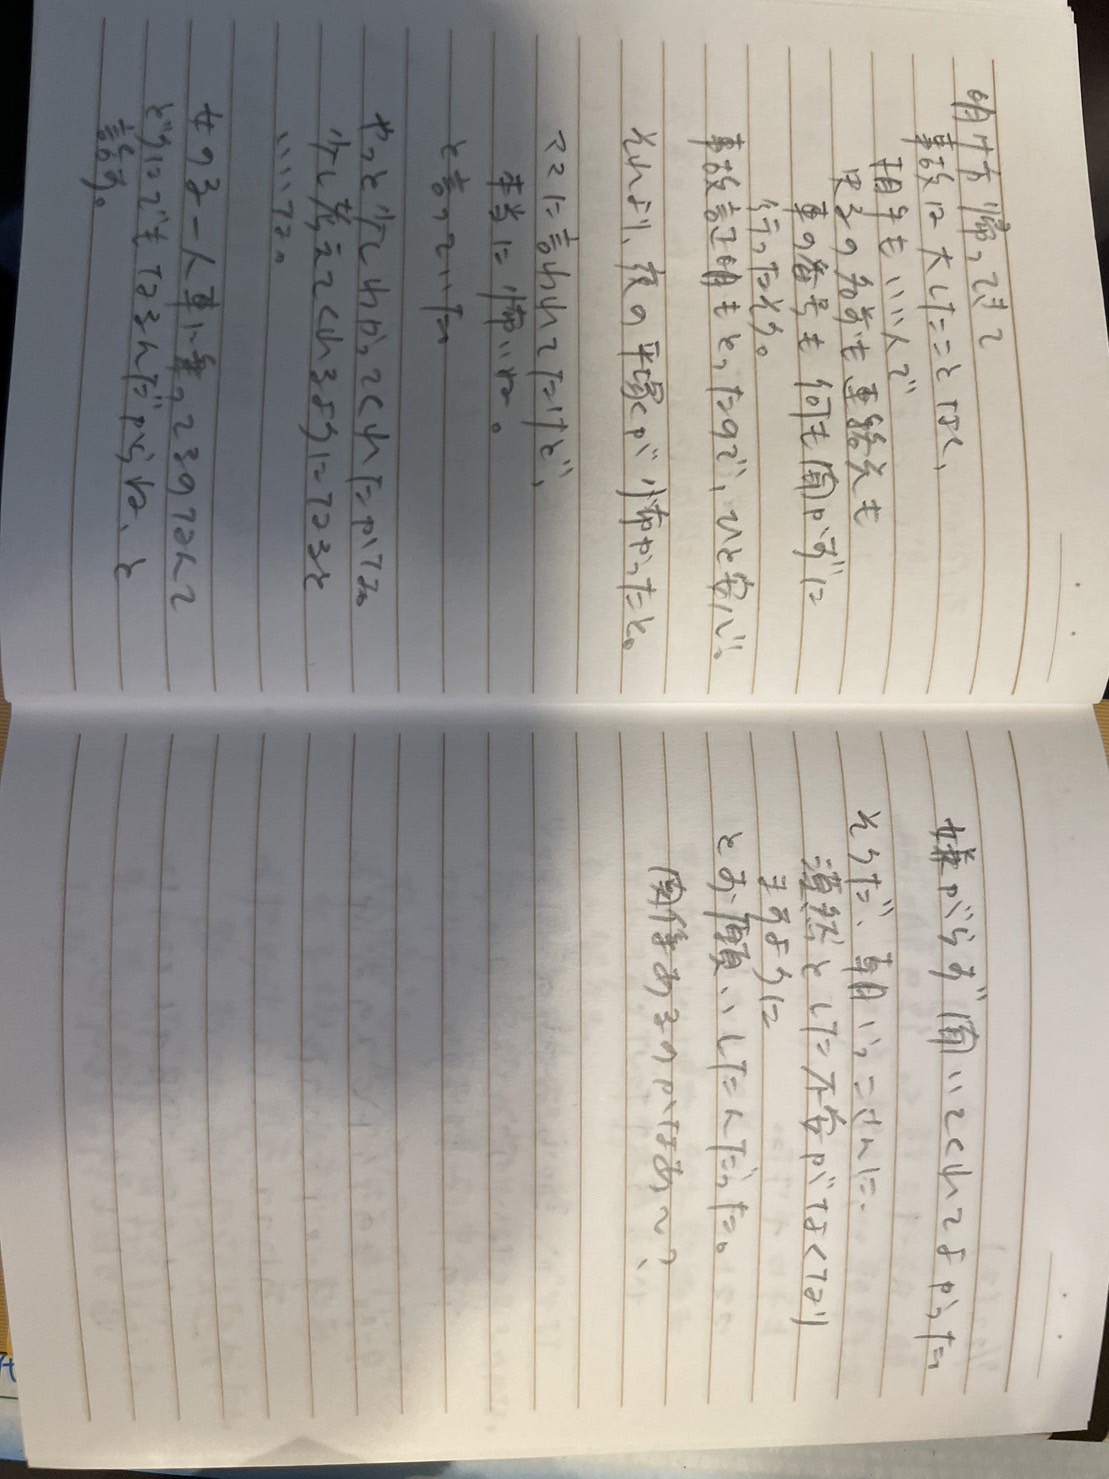 明け方帰ってきて
事故は大したことなく、
相手もいい人で
史子の名前も連絡先も
車の番号も何も聞かずに
行ったそう。
事故証明もとったので、ひと安心。
それより、夜の平塚が怖かったと。
ママに言われてたけど、
本当に怖いね。
と言っていた。
やっと少しわかってくれたかな。
少し考えてくれるようになると
いいな。
女の子一人車に乗ってるのなんて
どうにでもなるんだからね、と
話す。
嫌がらず聞いてくれてよかった
そうだ、朝いっこさんに
漠然とした不安がなくなり
ますように
とお願いしたんだった。
関係あるのかなあ〜?